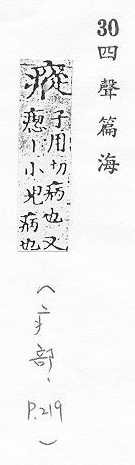 30 四聲篇海
瘲
子用切病也又
瘛丨小兒病也
(疒部、P.219)